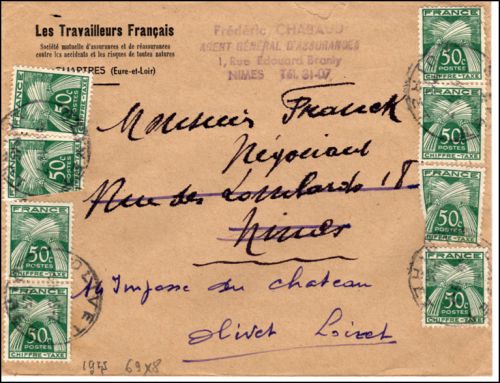 Les Travailleurs Français
Société mutuelle d'assurances et de réassurances
contre les accidents et les risques de toutes natures
CHARTRES (Eure-et-Loir)
Frédéric CHABAUD
AGENT GÉNÉRAL D'ASSURANCES
1, Rue Edouard Branly
NIMES Tél. 31-07
Monsieur Franck
Négociant
Rue des Lombards 18
Nimes
14 Impasse du chateau
Olivet Loiret
FRANCE
50c
POSTES
CHIFFRE-TAXE
FRANCE
50c
POSTES
CHIFFRE-TAXE
FRANCE
50c
POSTES
CHIFFRE-TAXE
FRANCE
50c
POSTES
CHIFFRE-TAXE
FRANCE
50c
POSTES
CHIFFRE-TAXE
FRANCE
50c
POSTES
CHIFFRE-TAXE
FRANCE
50c
POSTES
CHIFFRE-TAXE
FRANCE
50c
POSTES
CHIFFRE-TAXE
OLIVET
69x8